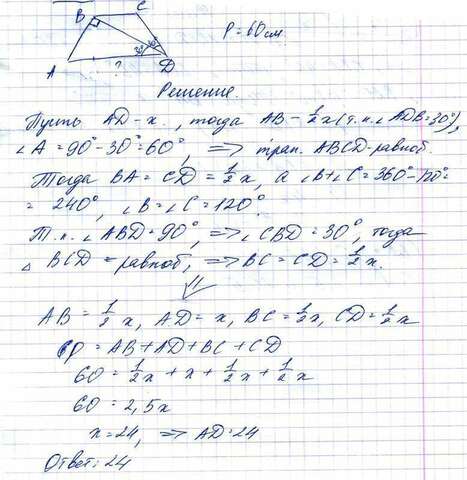 B C
P = 60 см.
30° 30°
A ? D
Решение.
Пусть AD - x., тогда AB - 1/2 x (т.к. ∠ADB = 30°),
∠A = 90° - 30° = 60°, => трап. ABCD - равноб.
Тогда BA = CD = 1/2 x, а ∠B + ∠C = 360° - 120° =
= 240°, ∠B = ∠C = 120°.
Т.к. ∠ABD = 90°, => ∠CBD = 30°, тогда
△ BCD = равноб, => BC = CD = 1/2 x.
AB = 1/2 x, AD = x, BC = 1/2 x, CD = 1/2 x
P = AB + AD + BC + CD
60 = 1/2 x + x + 1/2 x + 1/2 x
60 = 2,5x
x = 24, => AD = 24
Ответ: 24